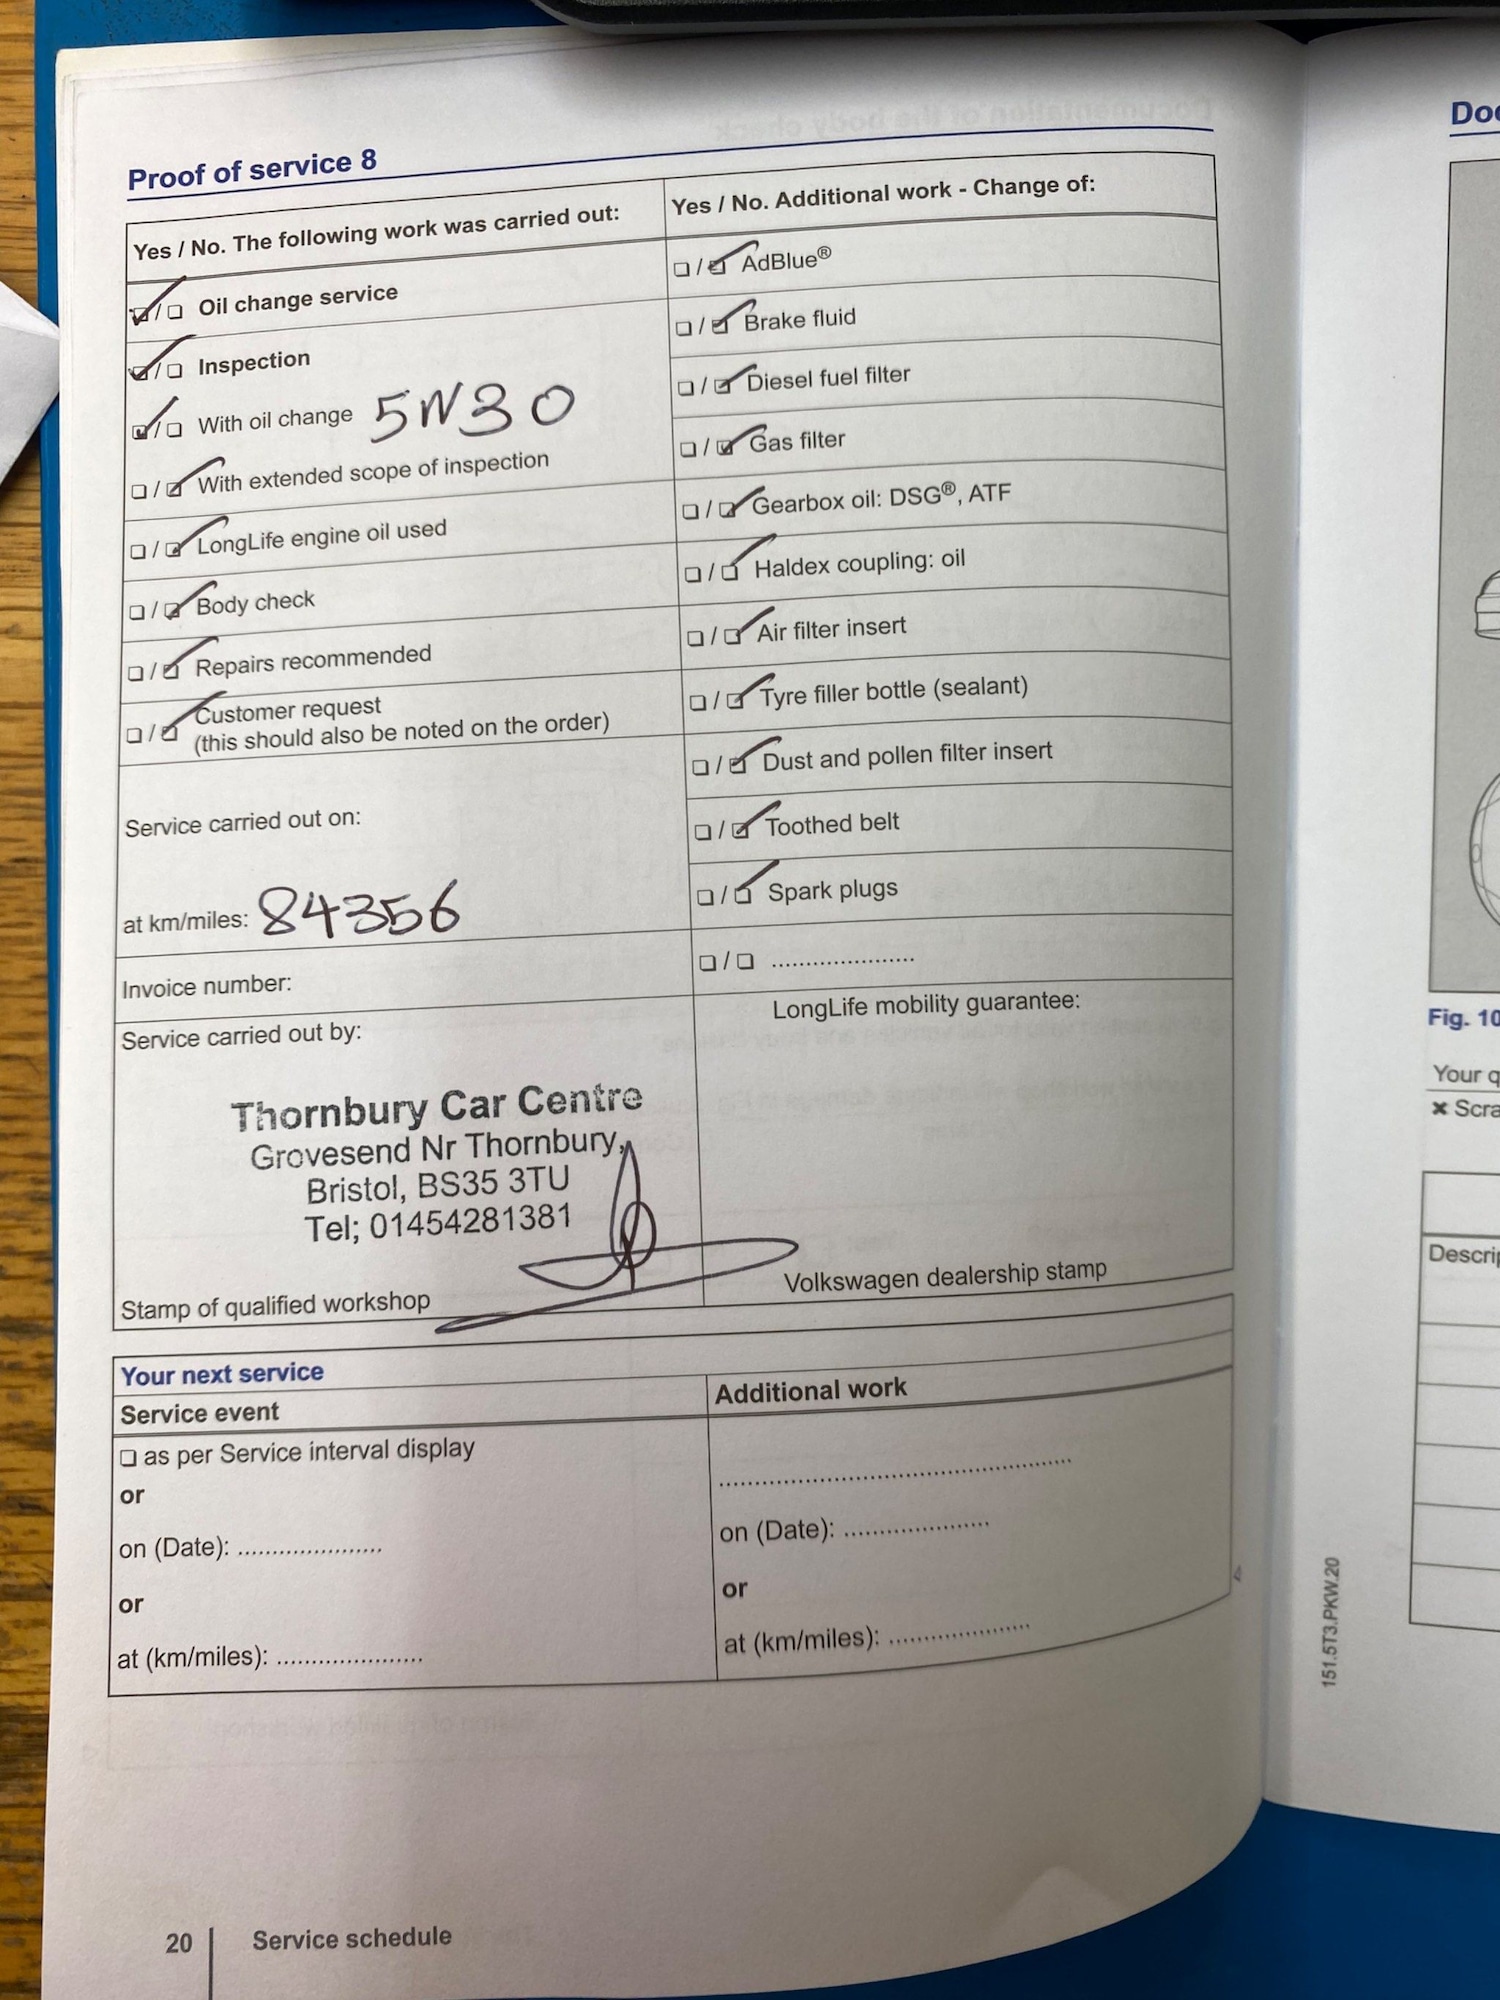 Proof of service 8
Yes / No. The following work was carried out:
Oil change service
Inspection
With oil change 5W30
With extended scope of inspection
LongLife engine oil used
Body check
Repairs recommended
Customer request
(this should also be noted on the order)
Service carried out on:
at km/miles: 84356
Invoice number:
Service carried out by:
Thornbury Car Centre
Grovesend Nr Thornbury,
Bristol, BS35 3TU
Tel; 01454281381
Stamp of qualified workshop
Yes / No. Additional work - Change of:
AdBlue®
Brake fluid
Diesel fuel filter
Gas filter
Gearbox oil: DSG®, ATF
Haldex coupling: oil
Air filter insert
Tyre filler bottle (sealant)
Dust and pollen filter insert
Toothed belt
Spark plugs
.....................
LongLife mobility guarantee:
Volkswagen dealership stamp
Your next service
Service event
as per Service interval display
or
on (Date): .....................
or
at (km/miles): .....................
Additional work
on (Date): .....................
or
at (km/miles): ....................
20
Service schedule
Fig. 10
Your
Scra
Descri
151.5T3.PKW.20